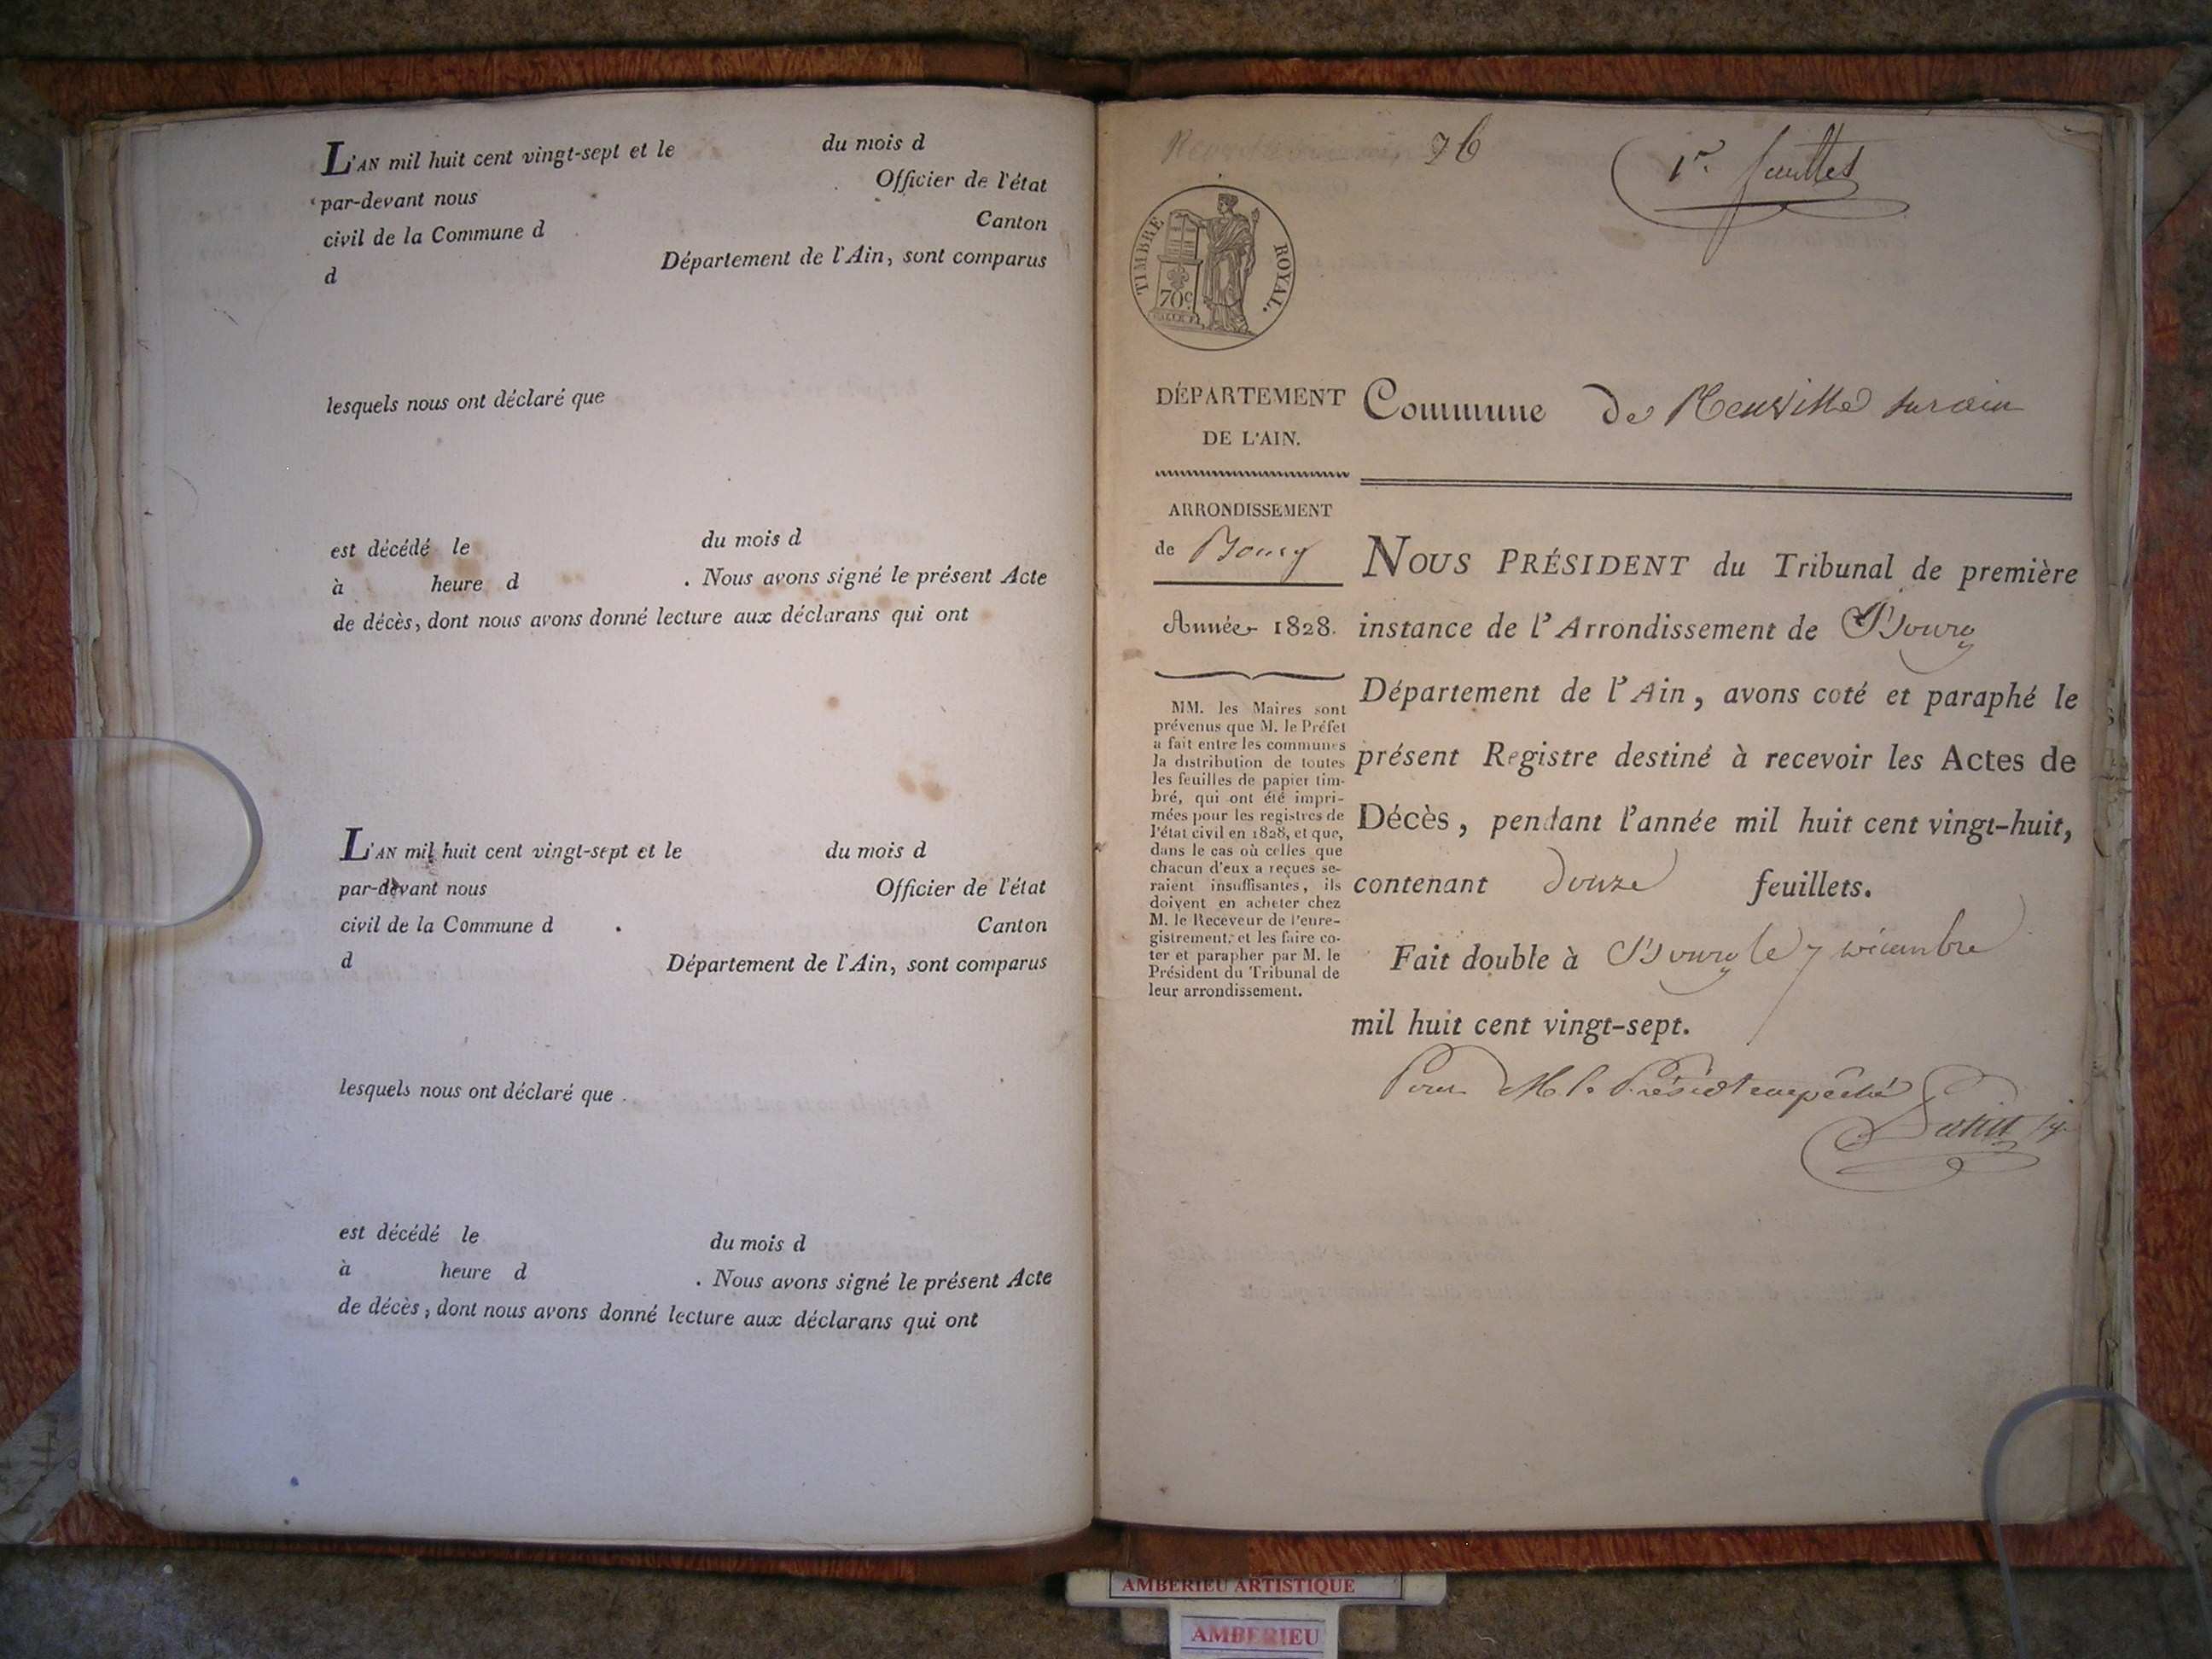 L'AN mil huit cent vingt-sept et le du mois d
par-devant nous Officier de l'état
civil de la Commune d Canton
d Département de l'Ain, sont comparus
lesquels nous ont déclaré que
est décédé le du mois d
à heure d . Nous avons signé le présent Acte
de décès, dont nous avons donné lecture aux déclarans qui ont
L'AN mil huit cent vingt-sept et le du mois d
par-devant nous Officier de l'état
civil de la Commune d Canton
d Département de l'Ain, sont comparus
lesquels nous ont déclaré que
est décédé le du mois d
à heure d . Nous avons signé le présent Acte
de décès, dont nous avons donné lecture aux déclarans qui ont
76
1er feuillet
TIMBRE ROYAL.
70c
DÉPARTEMENT
DE L'AIN.
Commune de Neuville sur ain
ARRONDISSEMENT
de Bourg
Année 1828.
MM. les Maires sont
prévenus que M. le Préfet
a fait entre les communes
la distribution de toutes
les feuilles de papier tim-
bré, qui ont été impri-
mées pour les registres de
l'état civil en 1828, et que,
dans le cas où celles que
chacun d'eux a reçues se-
raient insuffisantes, ils
doivent en acheter chez
M. le Receveur de l'enre-
gistrement, et les faire co-
ter et parapher par M. le
Président du Tribunal de
leur arrondissement.
NOUS PRÉSIDENT du Tribunal de première
instance de l'Arrondissement de Bourg
Département de l'Ain, avons coté et paraphé le
présent Registre destiné à recevoir les Actes de
Décès, pendant l'année mil huit cent vingt-huit,
contenant douze feuillets.
Fait double à Bourg le 7 décembre
mil huit cent vingt-sept.
Pour M. le Présidt empêché
AMBERIEU ARTISTIQUE
AMBERIEU